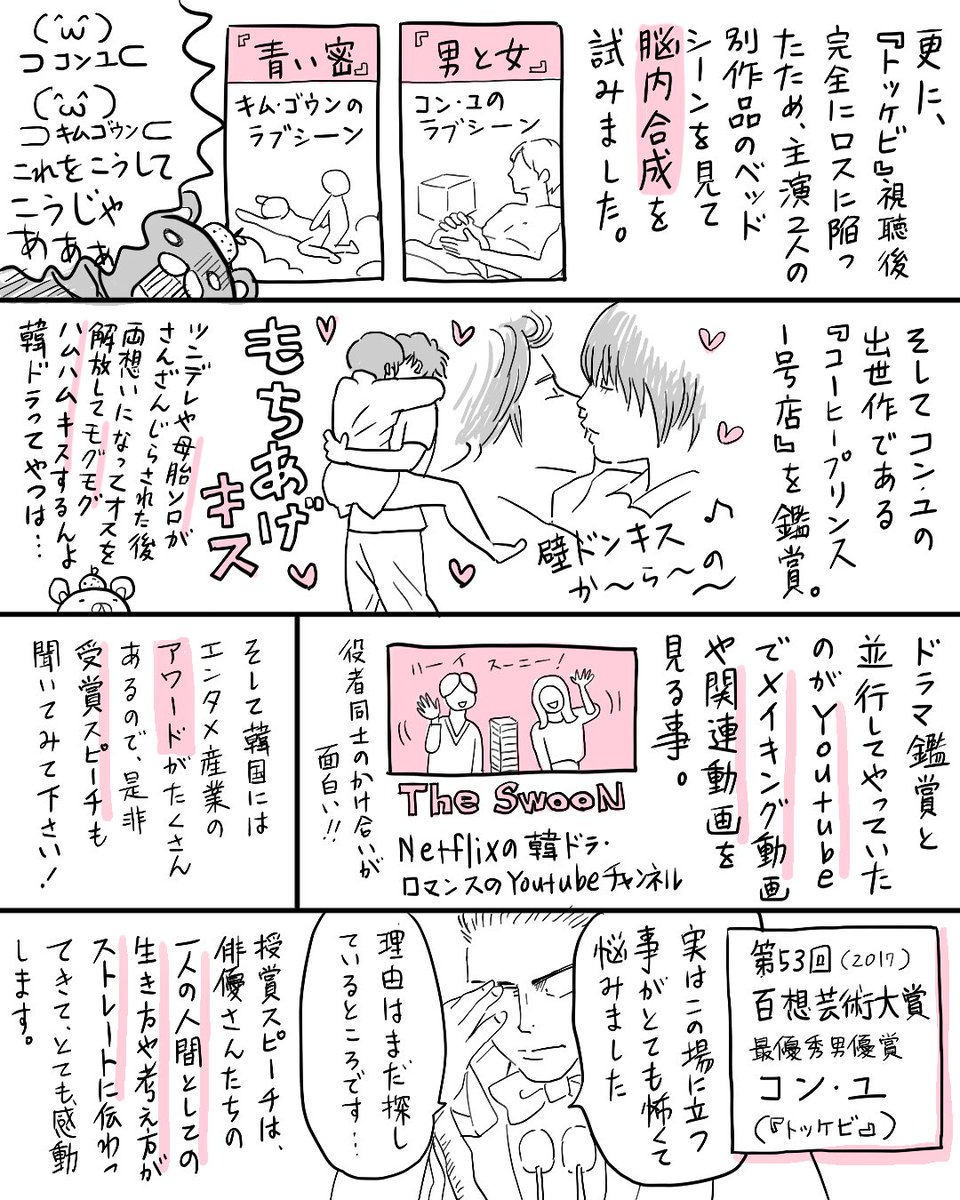 更に、
『トッケビ』視聴後
完全にロスに陥っ
たため、主演2人の
別作品のベッド
シーンを見て
脳内合成を
試みました。
『男と女』
コン・ユの
ラブシーン
『青い密』
キム・ゴウンの
ラブシーン
(´ω`)
⊃コンユ⊂
(´ω`)
⊃キムゴウン⊂
これをこうして
こうじゃ
あぁぁ
そしてコン・ユの
出世作である
『コーヒープリンス
1号店』を鑑賞。
壁ドンキス
か〜ら〜の〜♪
もちあげ
キス
ツンデレや母胎ソロが
さんざんじらされた後
両想いになってオスを
解放してモグモグ
ハムハムキスするんよ
韓ドラってやつは…
ドラマ鑑賞と
並行してやっていた
のがYoutube
でメイキング動画
や関連動画を
見る事。
ハーイ スーニー!
The SwooN
Netflixの韓ドラ・
ロマンスのYoutubeチャンネル
役者同士のかけ合いが
面白い!!
そして韓国には
エンタメ産業の
アワードがたくさん
あるので、是非
受賞スピーチも
聞いてみて下さい!
第53回(2017)
百想芸術大賞
最優秀男優賞
コン・ユ
(『トッケビ』)
実はこの場に立つ
事がとても怖くて
悩みました
理由はまだ探し
ているところです…
授賞スピーチは、
俳優さんたちの
一人の人間としての
生き方や考え方が
ストレートに伝わっ
てきて、とても感動
します。